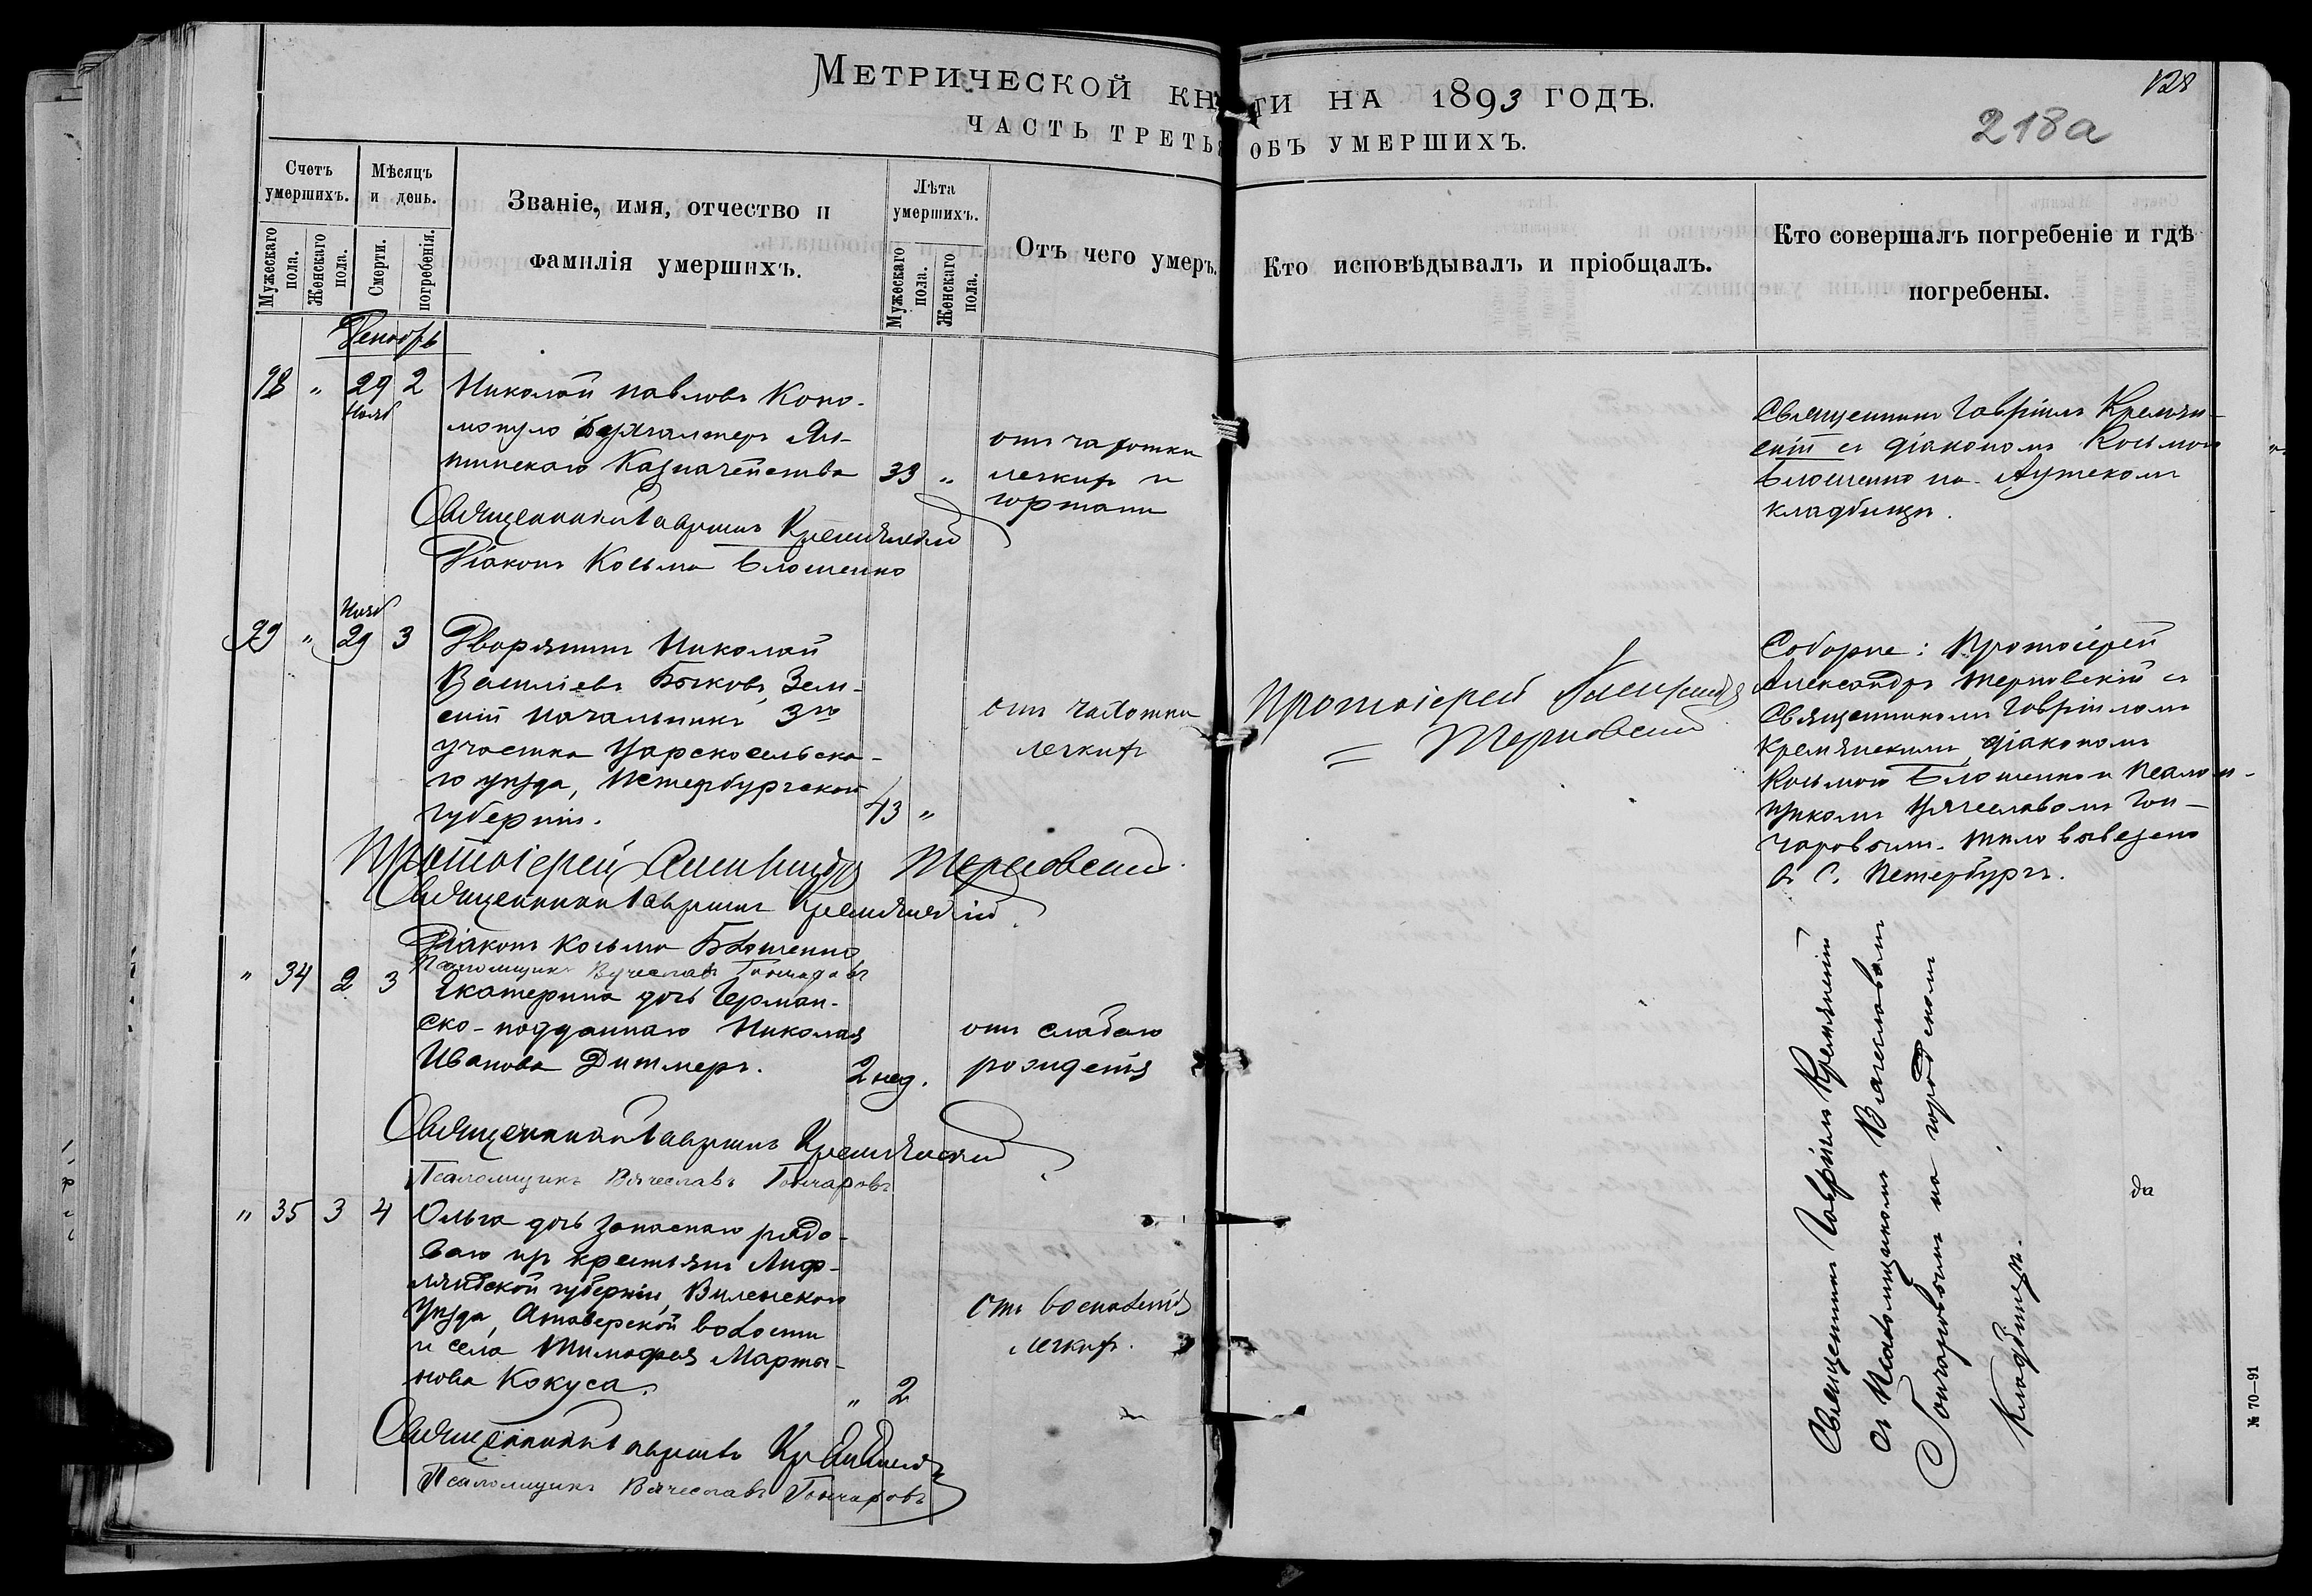 Метрической книги на 1893 годъ.
128
218а
Часть третья объ умершихъ.
Счетъ умершихъ.
Мужескаго пола.
Женскаго пола.
Мѣсяцъ и день.
Смерти.
погребенія.
Званіе, имя, отчество и
фамилія умершихъ.
Лѣта умершихъ.
Мужескаго пола.
Женскаго пола.
Отъ чего умеръ.
Кто исповѣдывалъ и пріобщалъ.
Кто совершалъ погребеніе и гдѣ
погребены.
Декабрь
" 29 2
Нояб
Николай Павловъ Коно-
мопуло бухгалтеръ Ял-
тинскаго Казначейства
33 "
отъ чахотки
легкихъ и
гортани
Священникъ Гавріилъ Кремян-
скій съ діакономъ Косьмою
Блошенко на Аутском
кладбищѣ.
Священникъ Гавріилъ Кремянскій
Діаконъ Косьма Блошенко
Нояб
" 29 3
Дворянинъ Николай
Васильевъ Быковъ, Зем-
скій Начальникъ 3го
участка Царскосельска-
го уѣзда, Петербургской
губерніи.
43 "
отъ чахотки
легкихъ
Протоіерей Александръ
Терновскій
Соборне: Протоіерей
Александръ Терновскій съ
Священникомъ Гавріиломъ
Кремянскимъ, діакономъ
Косьмою Блошенко и Псалом-
щикомъ Вячеславомъ Гон-
чаровымъ. Тѣло вывезено
въ С. Петербургъ.
Протоіерей Александръ Терновскій
Священникъ Гавріилъ Кремянскій
Діаконъ Косьма Блошенко
Псаломщикъ Вячеславъ Гончаровъ
" 34 2 3
Екатерина дочь Герман-
ско-подданнаго Николая
Иванова Дитмеръ.
2 нед.
отъ слабаго
рожденія
Священникъ Гавріилъ Кремянскій
Псаломщикъ Вячеславъ Гончаровъ
" 35 3 4
Ольга дочь запаснаго рядо-
ваго изъ крестьянъ Лиф-
ляндской губерніи,
Уѣзда, волости
и села Тимофея Марты-
нова Кокуса.
" 2
отъ воспаленія
легкихъ.
Священникъ Гавріилъ Кремянскій
съ Псаломщикомъ Вячеславомъ
Гончаровымъ на городскомъ
Кладбищѣ.
да
Священникъ Гавріилъ Кремянскій
Псаломщикъ Вячеславъ Гончаровъ
№ 70—91